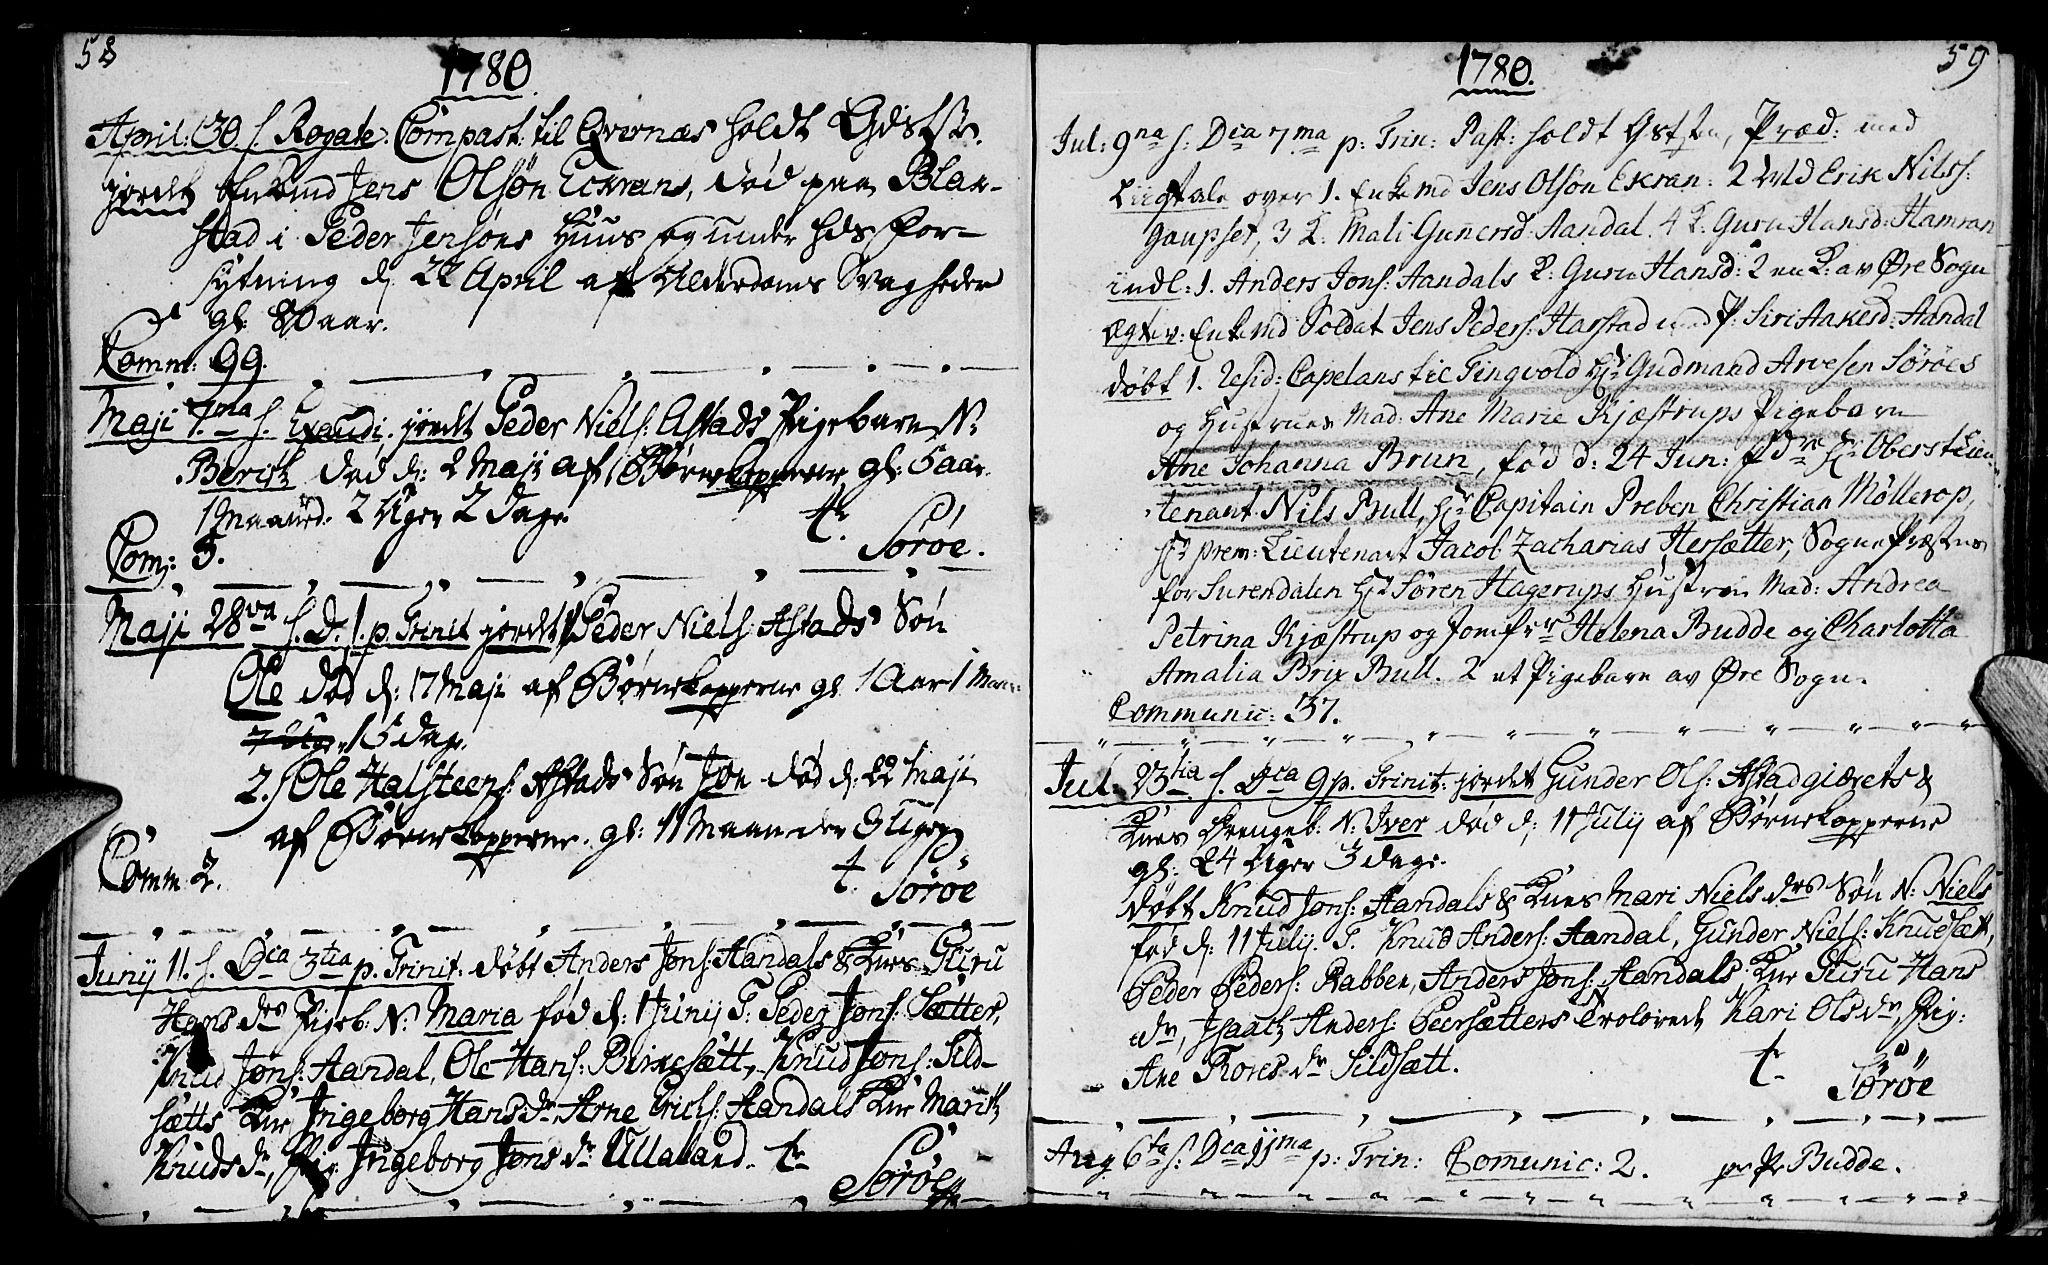 58
1780
April: 30 s. Rogate: Compast: til Qvernæs holdt Gdstn.
jordet Enkemd Jens Olsøn Eckrans, død paa Blak-
stad i Peder Jensøns Huus og under hds for-
sytning d. 22 April af Alderdoms Svagheder
gl: 80 aar.
Comm: 99.
Maji 7.ma s. Exaudi. jordet Peder Niels: Astads Pigebarn N:
Berith død d: 2 Maji af Børnekopperne gl: 5 aar.
1 Maaned. 2 Uger 2 dage
Com: 5. t. Sørøe.
Maji 28va s. D. 1. p. Trinit jordet 1 Peder Niels: Astads Søn
Ole død d: 17 Maji af Børnekopperne gl 1 Aar 1 Maan:
15 dag.
2. Ole Halsteens: Astads Søn Jon død d: 22 Maji
af Børnekopperne. gl: 11 Maaneder 3 Uger
Comm 2. t. Sørøe
Junij 11. s. Dca 3tia p. Trinit døbt Anders Jøns: Aandals & Knes Guru
Hans drs Pigeb. N: Maria fød d: 1 Junij T: Peder Jøns: Sætter,
Knud Jøns: Aandal, Ole Hans: Birkesætt, Knud Jøns: Sild-
sætts Kne Ingeborg Hans dr. Arne Erichs: Aandals Kne Marith
Knuds dr, Pig Ingeborg Jøns dr Ullaland. t.
Sørøe
59
1780.
Jul: 9na s: Dca 7ma p: Trin: Past: holdt Gstten, Præd: med
Liigtale over 1. Enkemd Jens Olsøn Ekran: 2 Erik Nilss:
Gaupset, 3 K: Mali Gunersd: Aandal. 4 K: Guru Hansd: Hamran
indl: 1. Anders Jons: Aandals K: Guru Hansd: 2 en K: av Øre Sogn
Ægtev: Enkemd Soldat Jens Peders: Harstad med P: Siri Aakesd: Aandal
døbt 1. Resid: Capelans til Tingvold Hr Gudmand Arvesen Sørøes
og Hustrues Mad: Ane Marie Kjæstrups Pigebarn
Ane Johanna Brun, fød d: 24 Jun: Fdre Hr Oberstlieu-
tenant Nils Bull, Hr Capitain Preben Christian Möllerop,
Hr prem: Lieutenant Jacob Zacharias Hersætter, Sogne Præstens
for Surendalen Hr Sören Hagerups Hustrue Mad: Andrea
Petrina Kjæstrup og Jomfrr Helena Budde og Charlotta
Amalia Brix Bull. 2 et Pigebarn av Øre Sogn.
Communic: 37.
Jul: 23tia s. Dca 9 p. Trinit: jordet Gunder Ols: Astadgiærets &
Knes Drengeb: N: Iver død d: 11 July af Børnekopperne
gl: 24 Uger 3 dage.
døbt Knud Jøns: Aandals & Knes Mari Niels drs Søn N: Niels
fød d: 11 July. T. Knud Anders: Aandal, Gunder Niels: Knudsætt,
Peder Peders: Rabben, Anders Jøns: Aandals Kne Guru Hans
dr, Isaach Anders: Peersætters Trolovede Kari Ols dr, Pig:
Ane Tores dr Sildsætt. t.
Sørøe
Aug 6ta s: Dca 11ma p: Trin: Comunic: 2. pr Pr Budde.